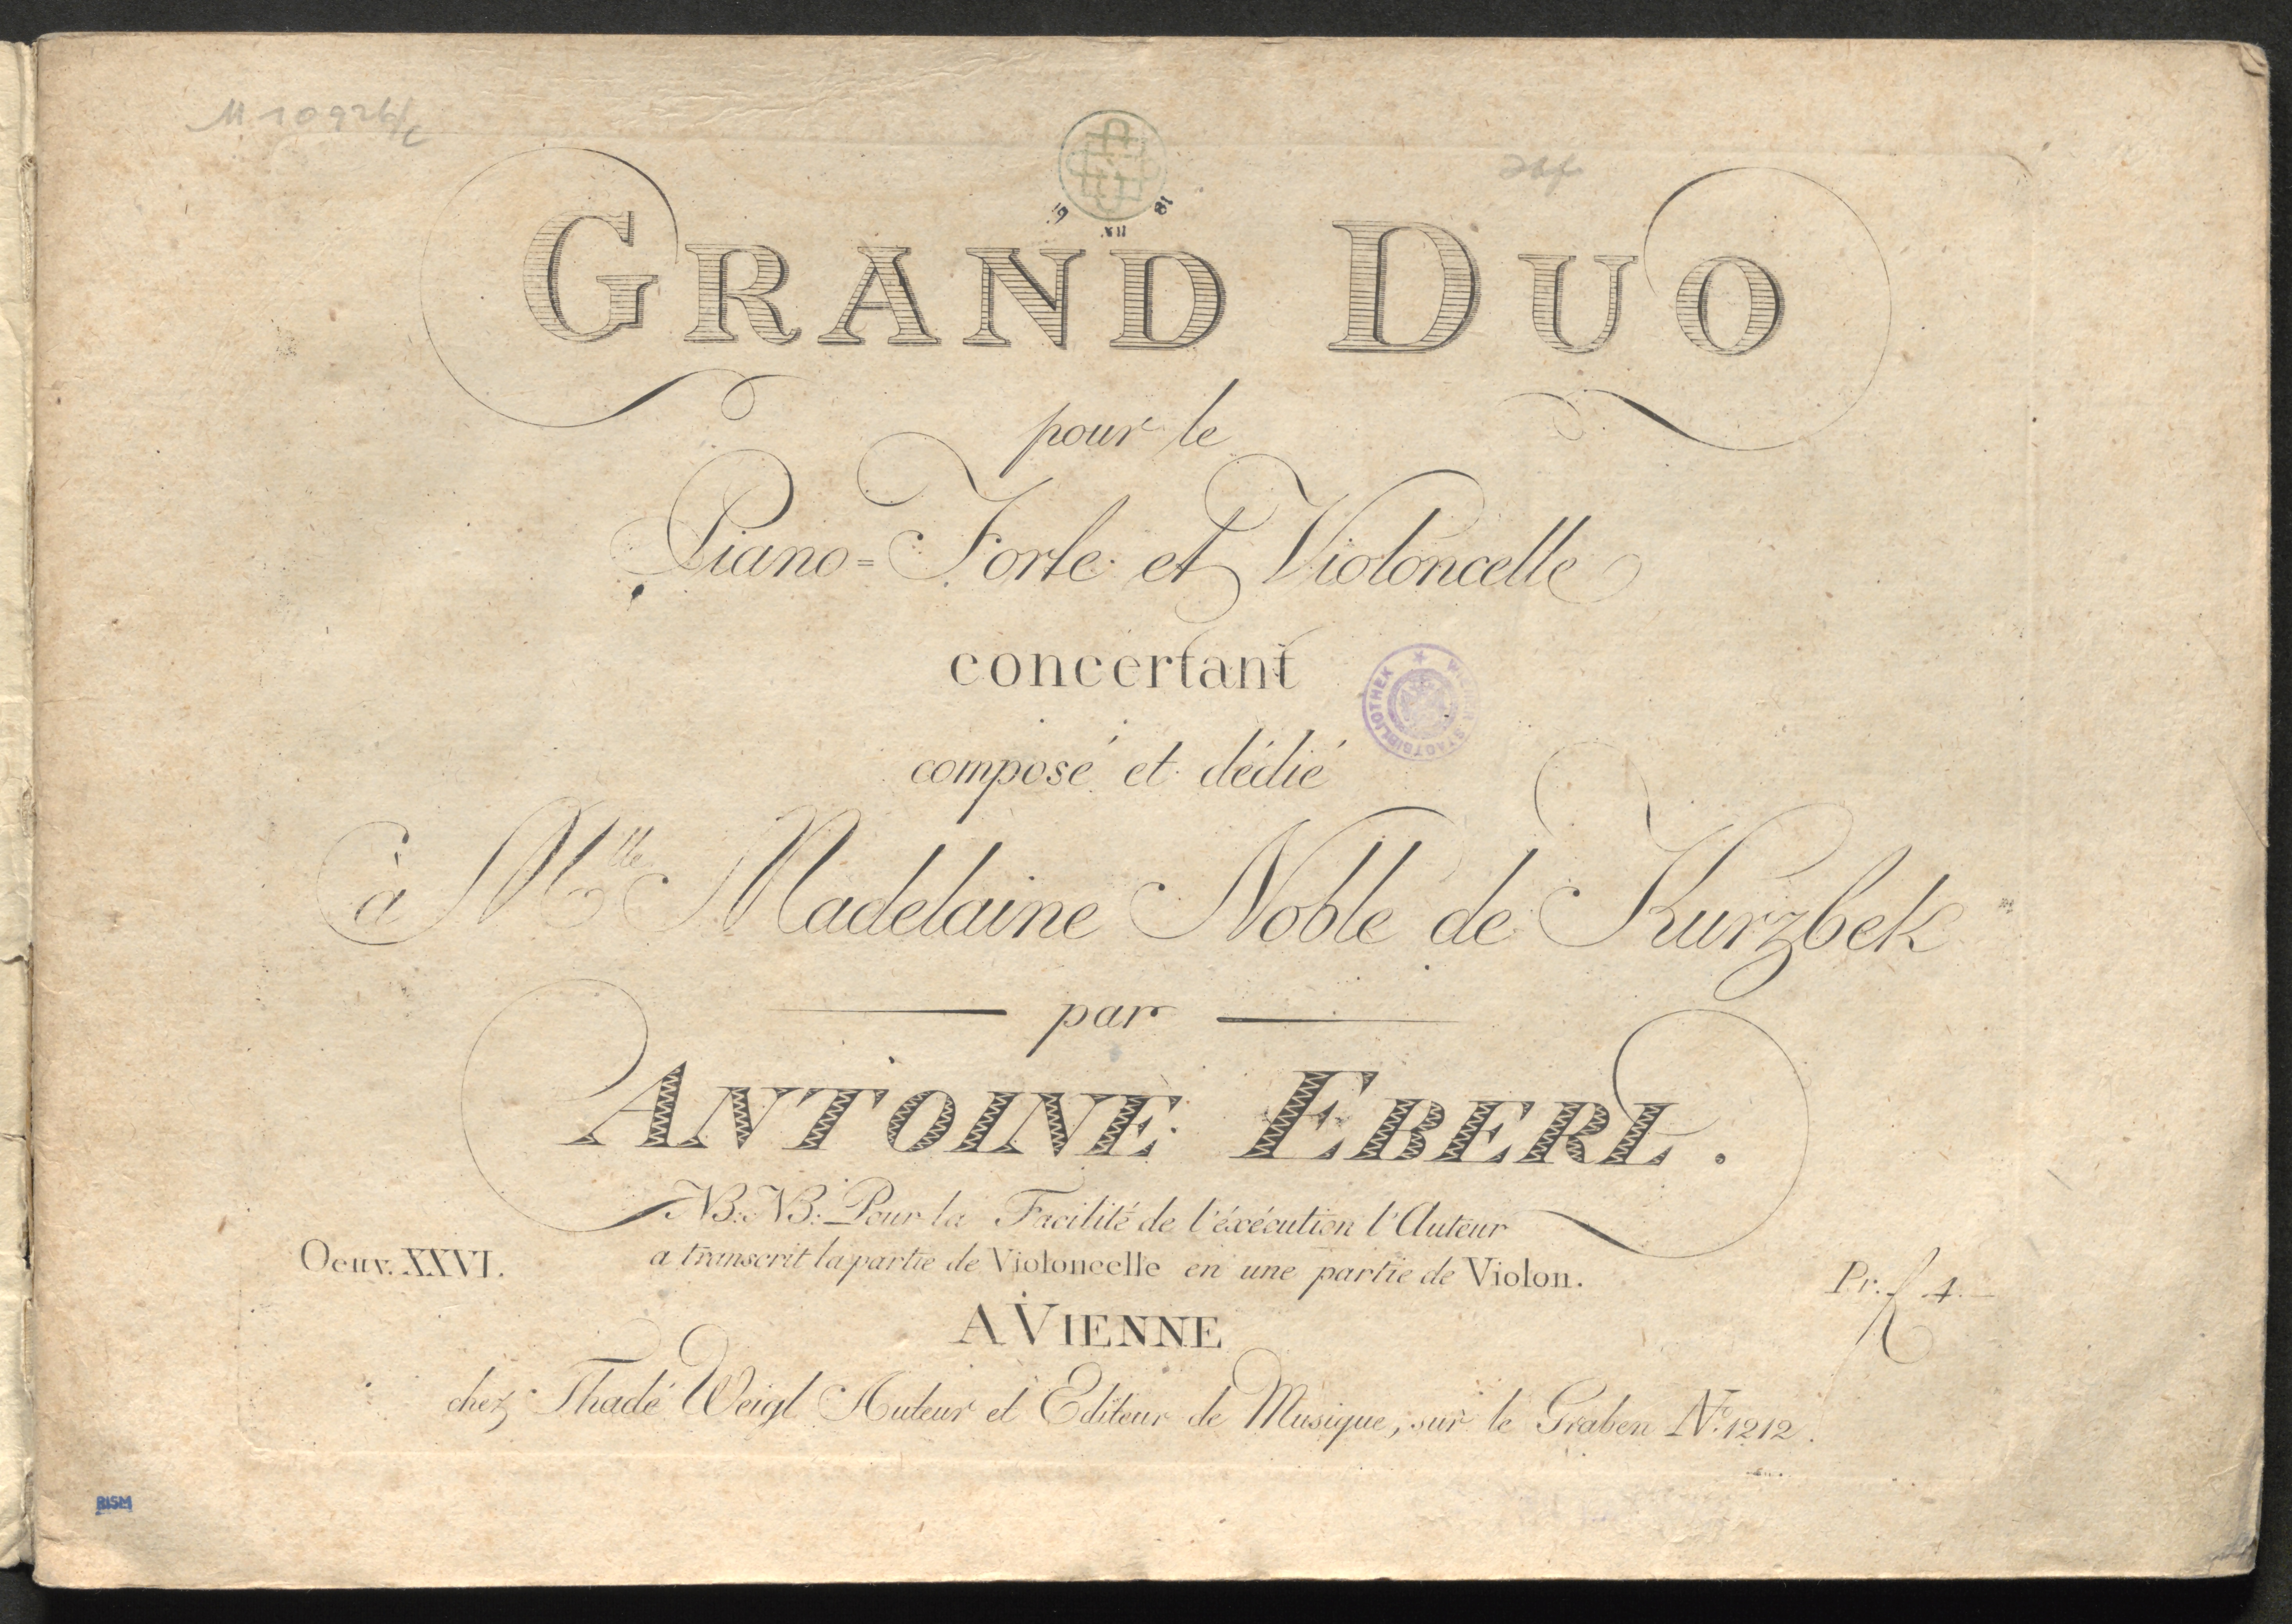 GRAND DUO
pour le
Piano=Forte et Violoncelle
concertant
composé et dédié
à Mlle Madelaine Noble de Kurzbek
par
ANTOINE EBERL.
NB: NB: Pour la Facilité de l'éxécution l'Auteur
a transcrit la partie de Violoncelle en une partie de Violon.
Oeuv. XXVI.
Pr. f 4.
A VIENNE
chez Thadé Weigl Auteur et Editeur de Musique, sur le Graben No. 1212.
RISM